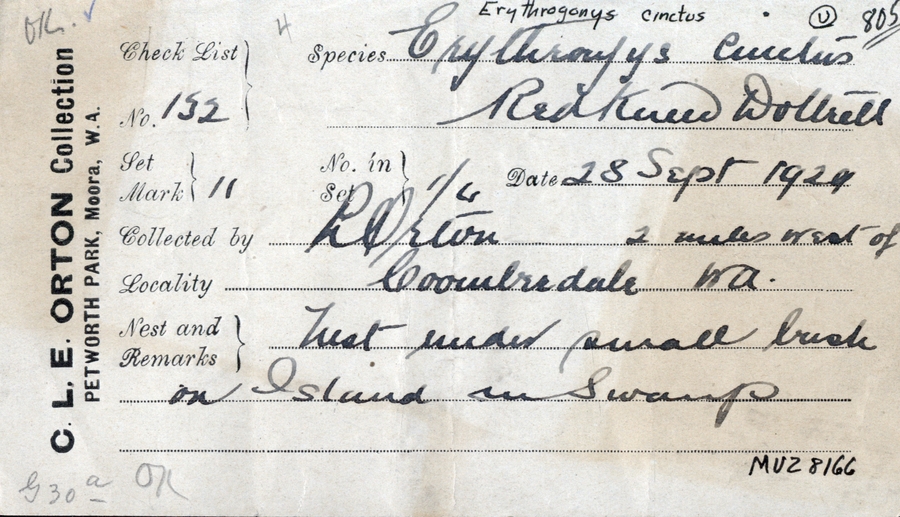 OK.
4
Erythrogonys cinctus
U 805
C. L. E. ORTON Collection
PETWORTH PARK, Moora, W.A.
Check List
No. 152
Species Erythrogonys cinctus
Red Kneed Dottrell
Set Mark 11
No. in Set 1/4
Date 28 Sept 1929
Collected by Orton 2 miles west of
Locality Coomberdale WA.
Nest and Remarks Nest under small bush
on Island in Swamp
G30a OK
MVZ 8166